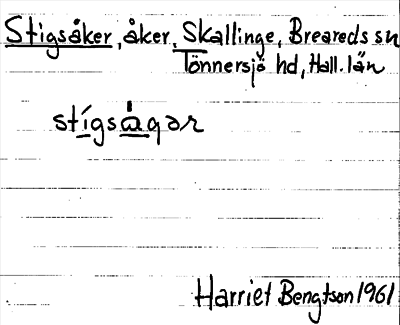 Stigsåker, åker, Skallinge, Breareds sn
Tönnersjö hd, Hall. län
stígsàgər
Harriet Bengtson 1961